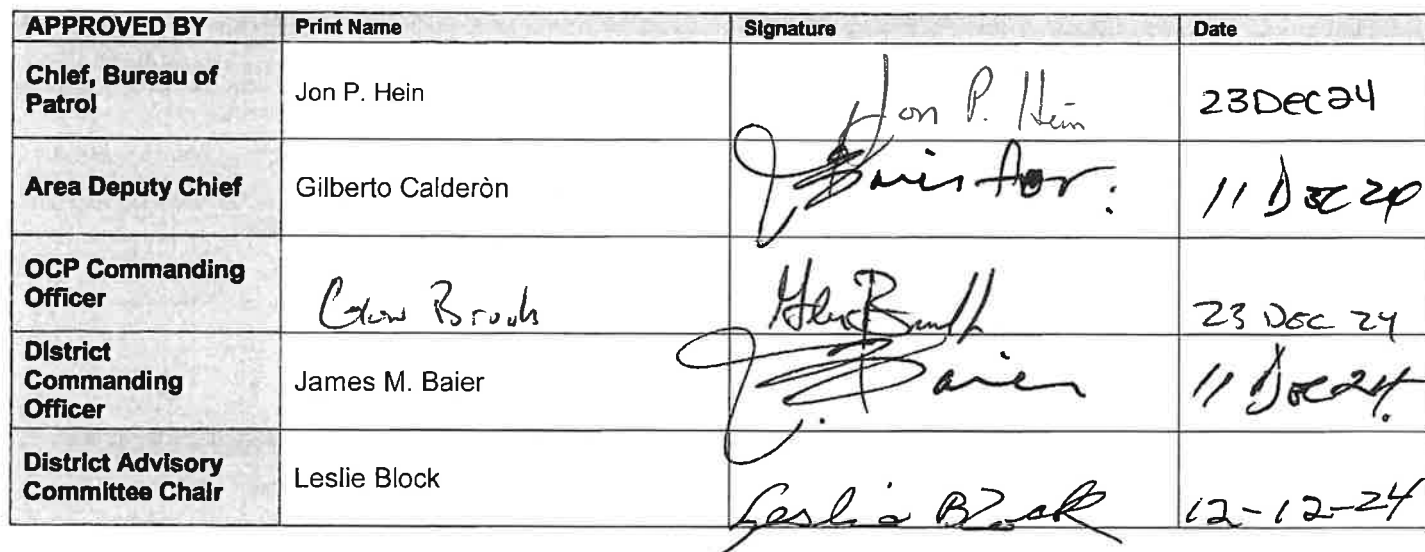 APPROVED BY Print Name Signature Date
Chief, Bureau of
Patrol
Jon P. Hein Jon P. Hein 23Dec24
Area Deputy Chief Gilberto Calderòn J Baier for. 11 Dec 24
OCP Commanding
Officer
Glen Brooks Glen Brooks 23 Dec 24
District
Commanding
Officer
James M. Baier J. Baier 11 Dec 24.
District Advisory
Committee Chair
Leslie Block Leslie Block 12-12-24